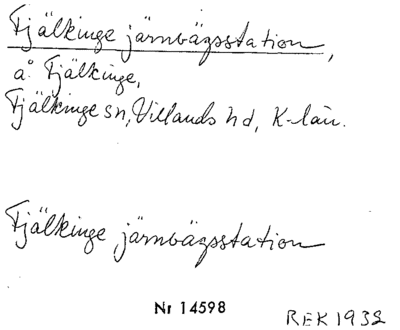 Fjälkinge järnvägsstation,
å Fjälkinge,
Fjälkinge sn, Villands hd, K-län.
Fjälkinge järnvägsstation
Nr 14598
REK 1932